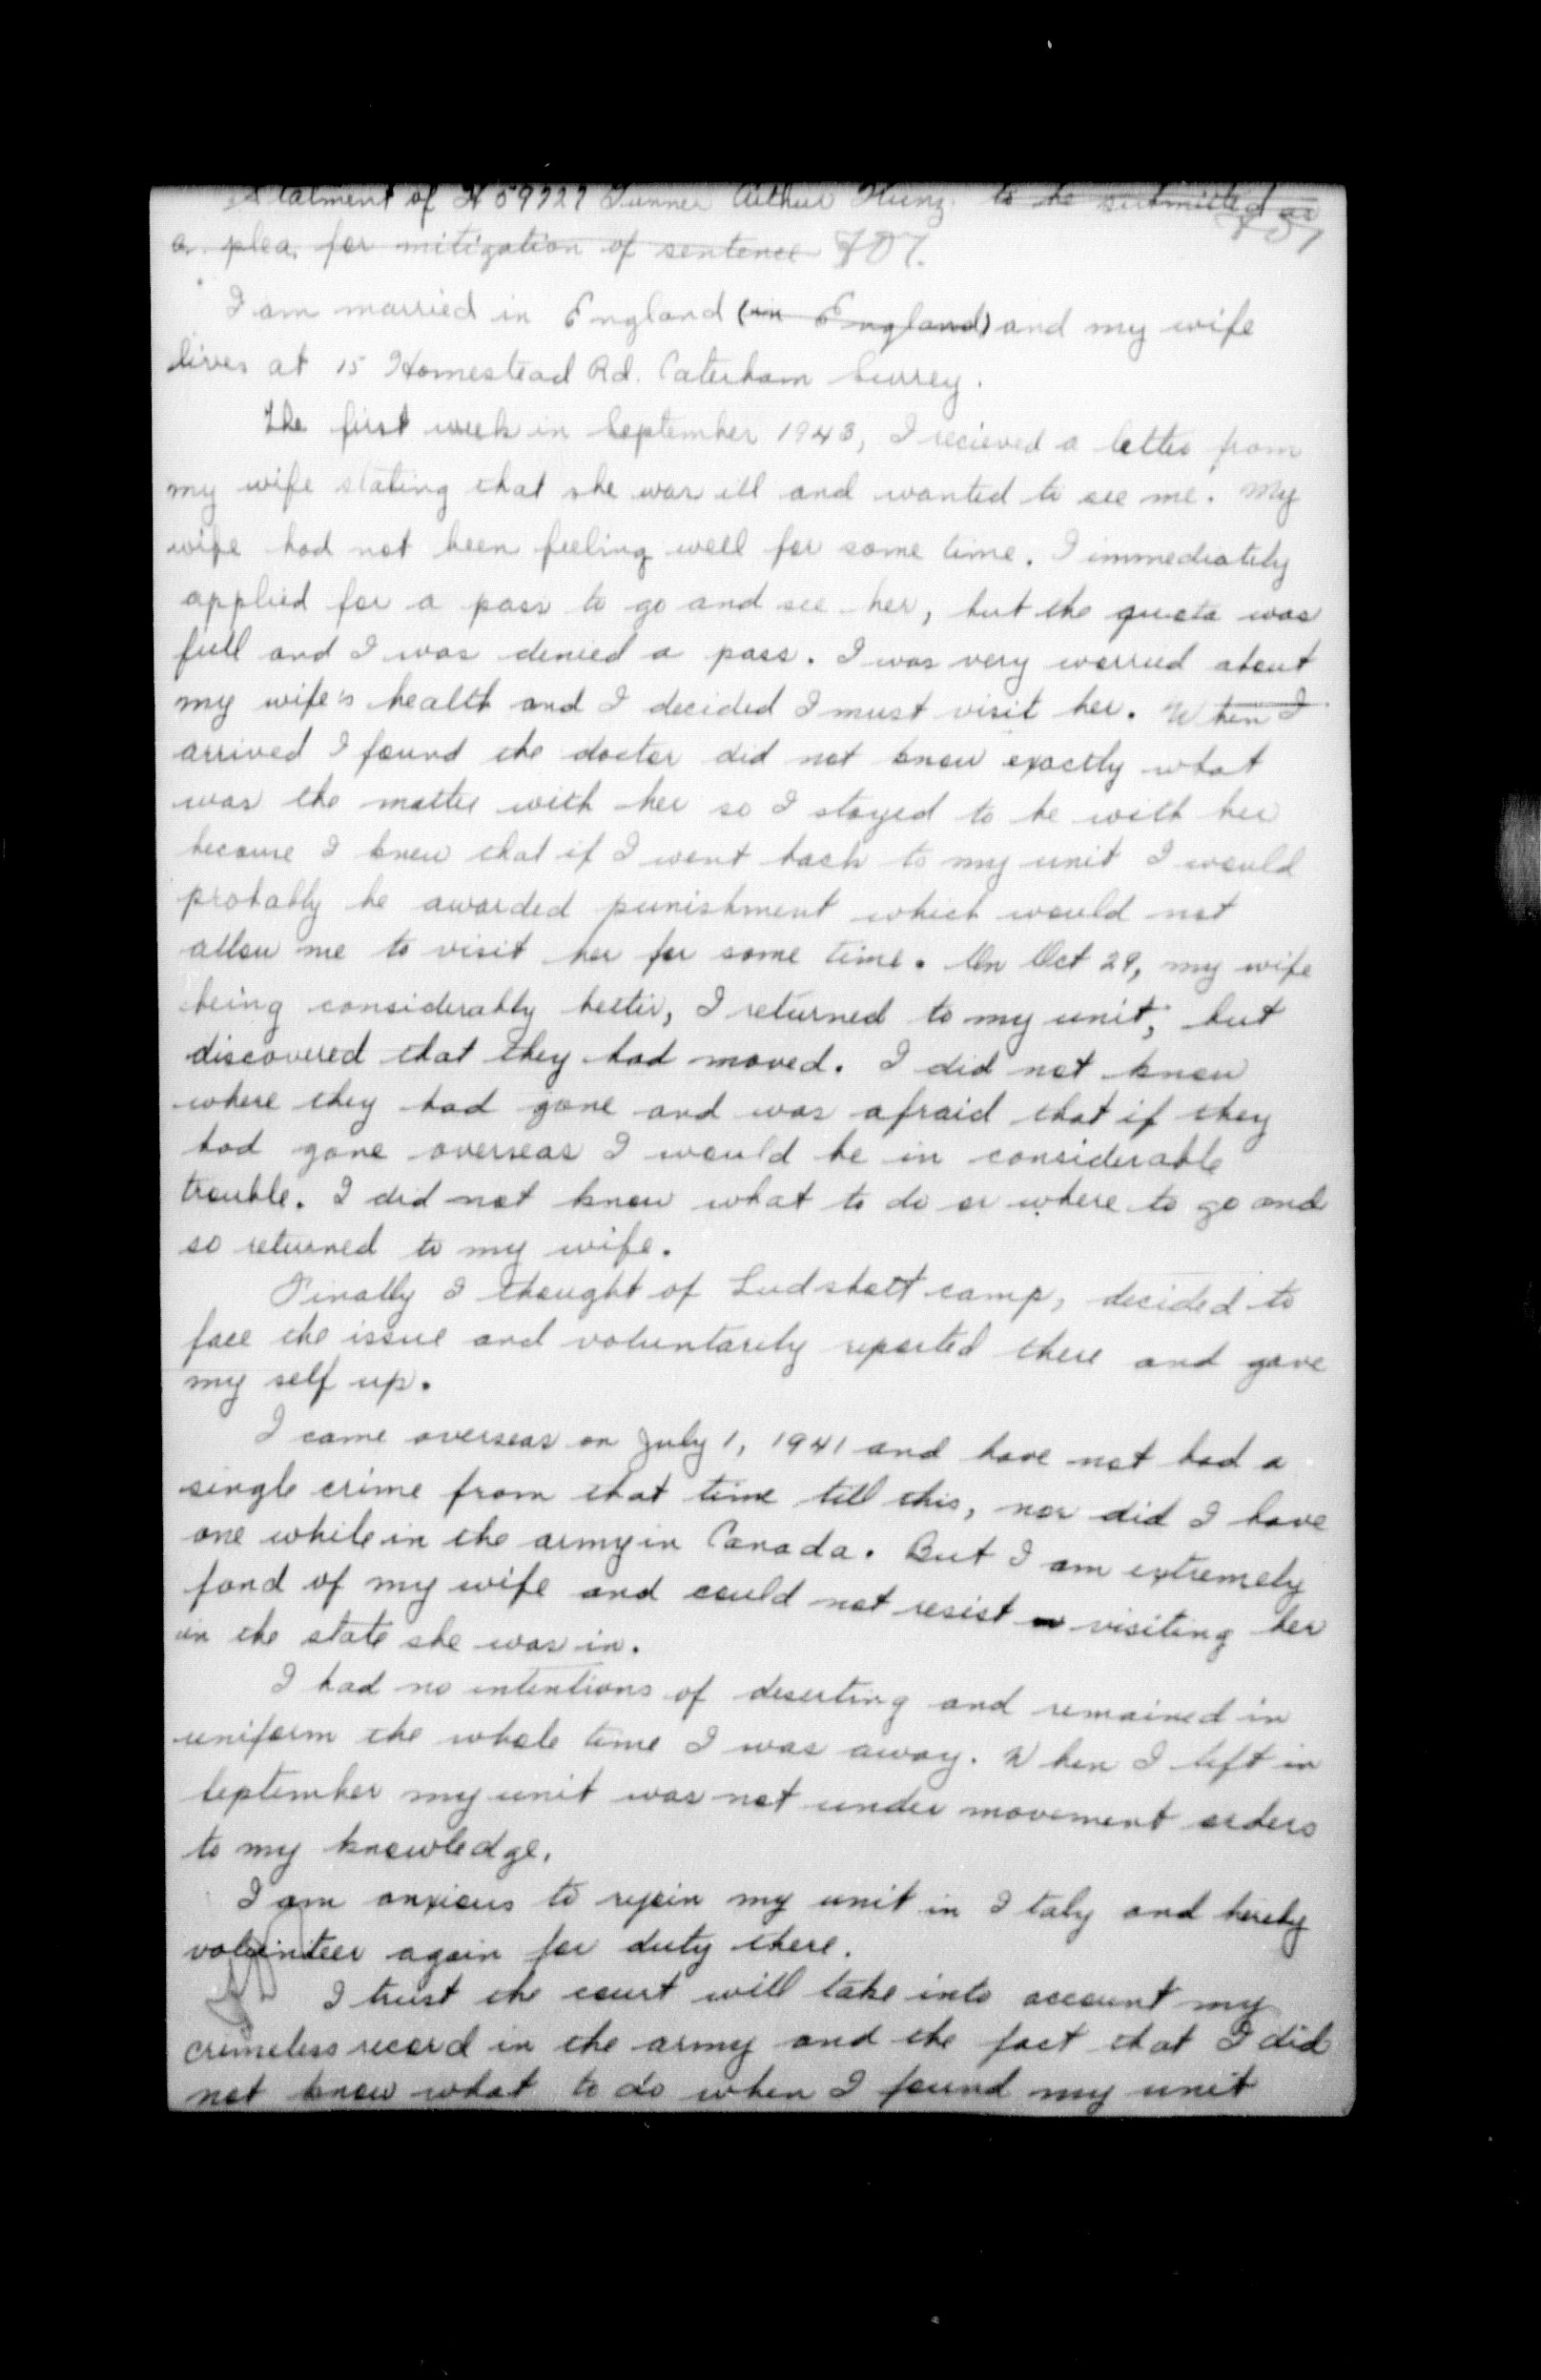 Statment of H 59727 Gunner Arthur Kunz. to be submitted as
a plea for mitigation of sentence
I am married in England (in England) and my wife
lives at 15 Homestead Rd. Caterham Surrey.
The first week in September 1943, I recieved a letter from
my wife stating that she was ill and wanted to see me. My
wife had not been feeling well for some time. I immediately
applied for a pass to go and see her, but the quota was
full and I was denied a pass. I was very worried about
my wife's health and I decided I must visit her. When I
arrived I found the doctor did not know exactly what
was the matter with her so I stayed to be with her
because I knew that if I went back to my unit I would
probably be awarded punishment which would not
allow me to visit her for some time. On Oct 29, my wife
being considerably better, I returned to my unit, but
discovered that they had moved. I did not know
where they had gone and was afraid that if they
had gone overseas I would be in considerable
trouble. I did not know what to do or where to go and
so returned to my wife.
Finally I thought of Ludshott camp, decided to
face the issue and voluntarily reported there and gave
my self up.
I came overseas on July 1, 1941 and have not had a
single crime from that time till this, nor did I have
one while in the army in Canada. But I am extremely
fond of my wife and could not resist visiting her
in the state she was in.
I had no intentions of deserting and remained in
uniform the whole time I was away. When I left in
September my unit was not under movement orders
to my knowledge.
I am anxious to rejoin my unit in Italy and hereby
volunteer again for duty there.
I trust the court will take into account my
crimeless record in the army and the fact that I did
not know what to do when I found my unit